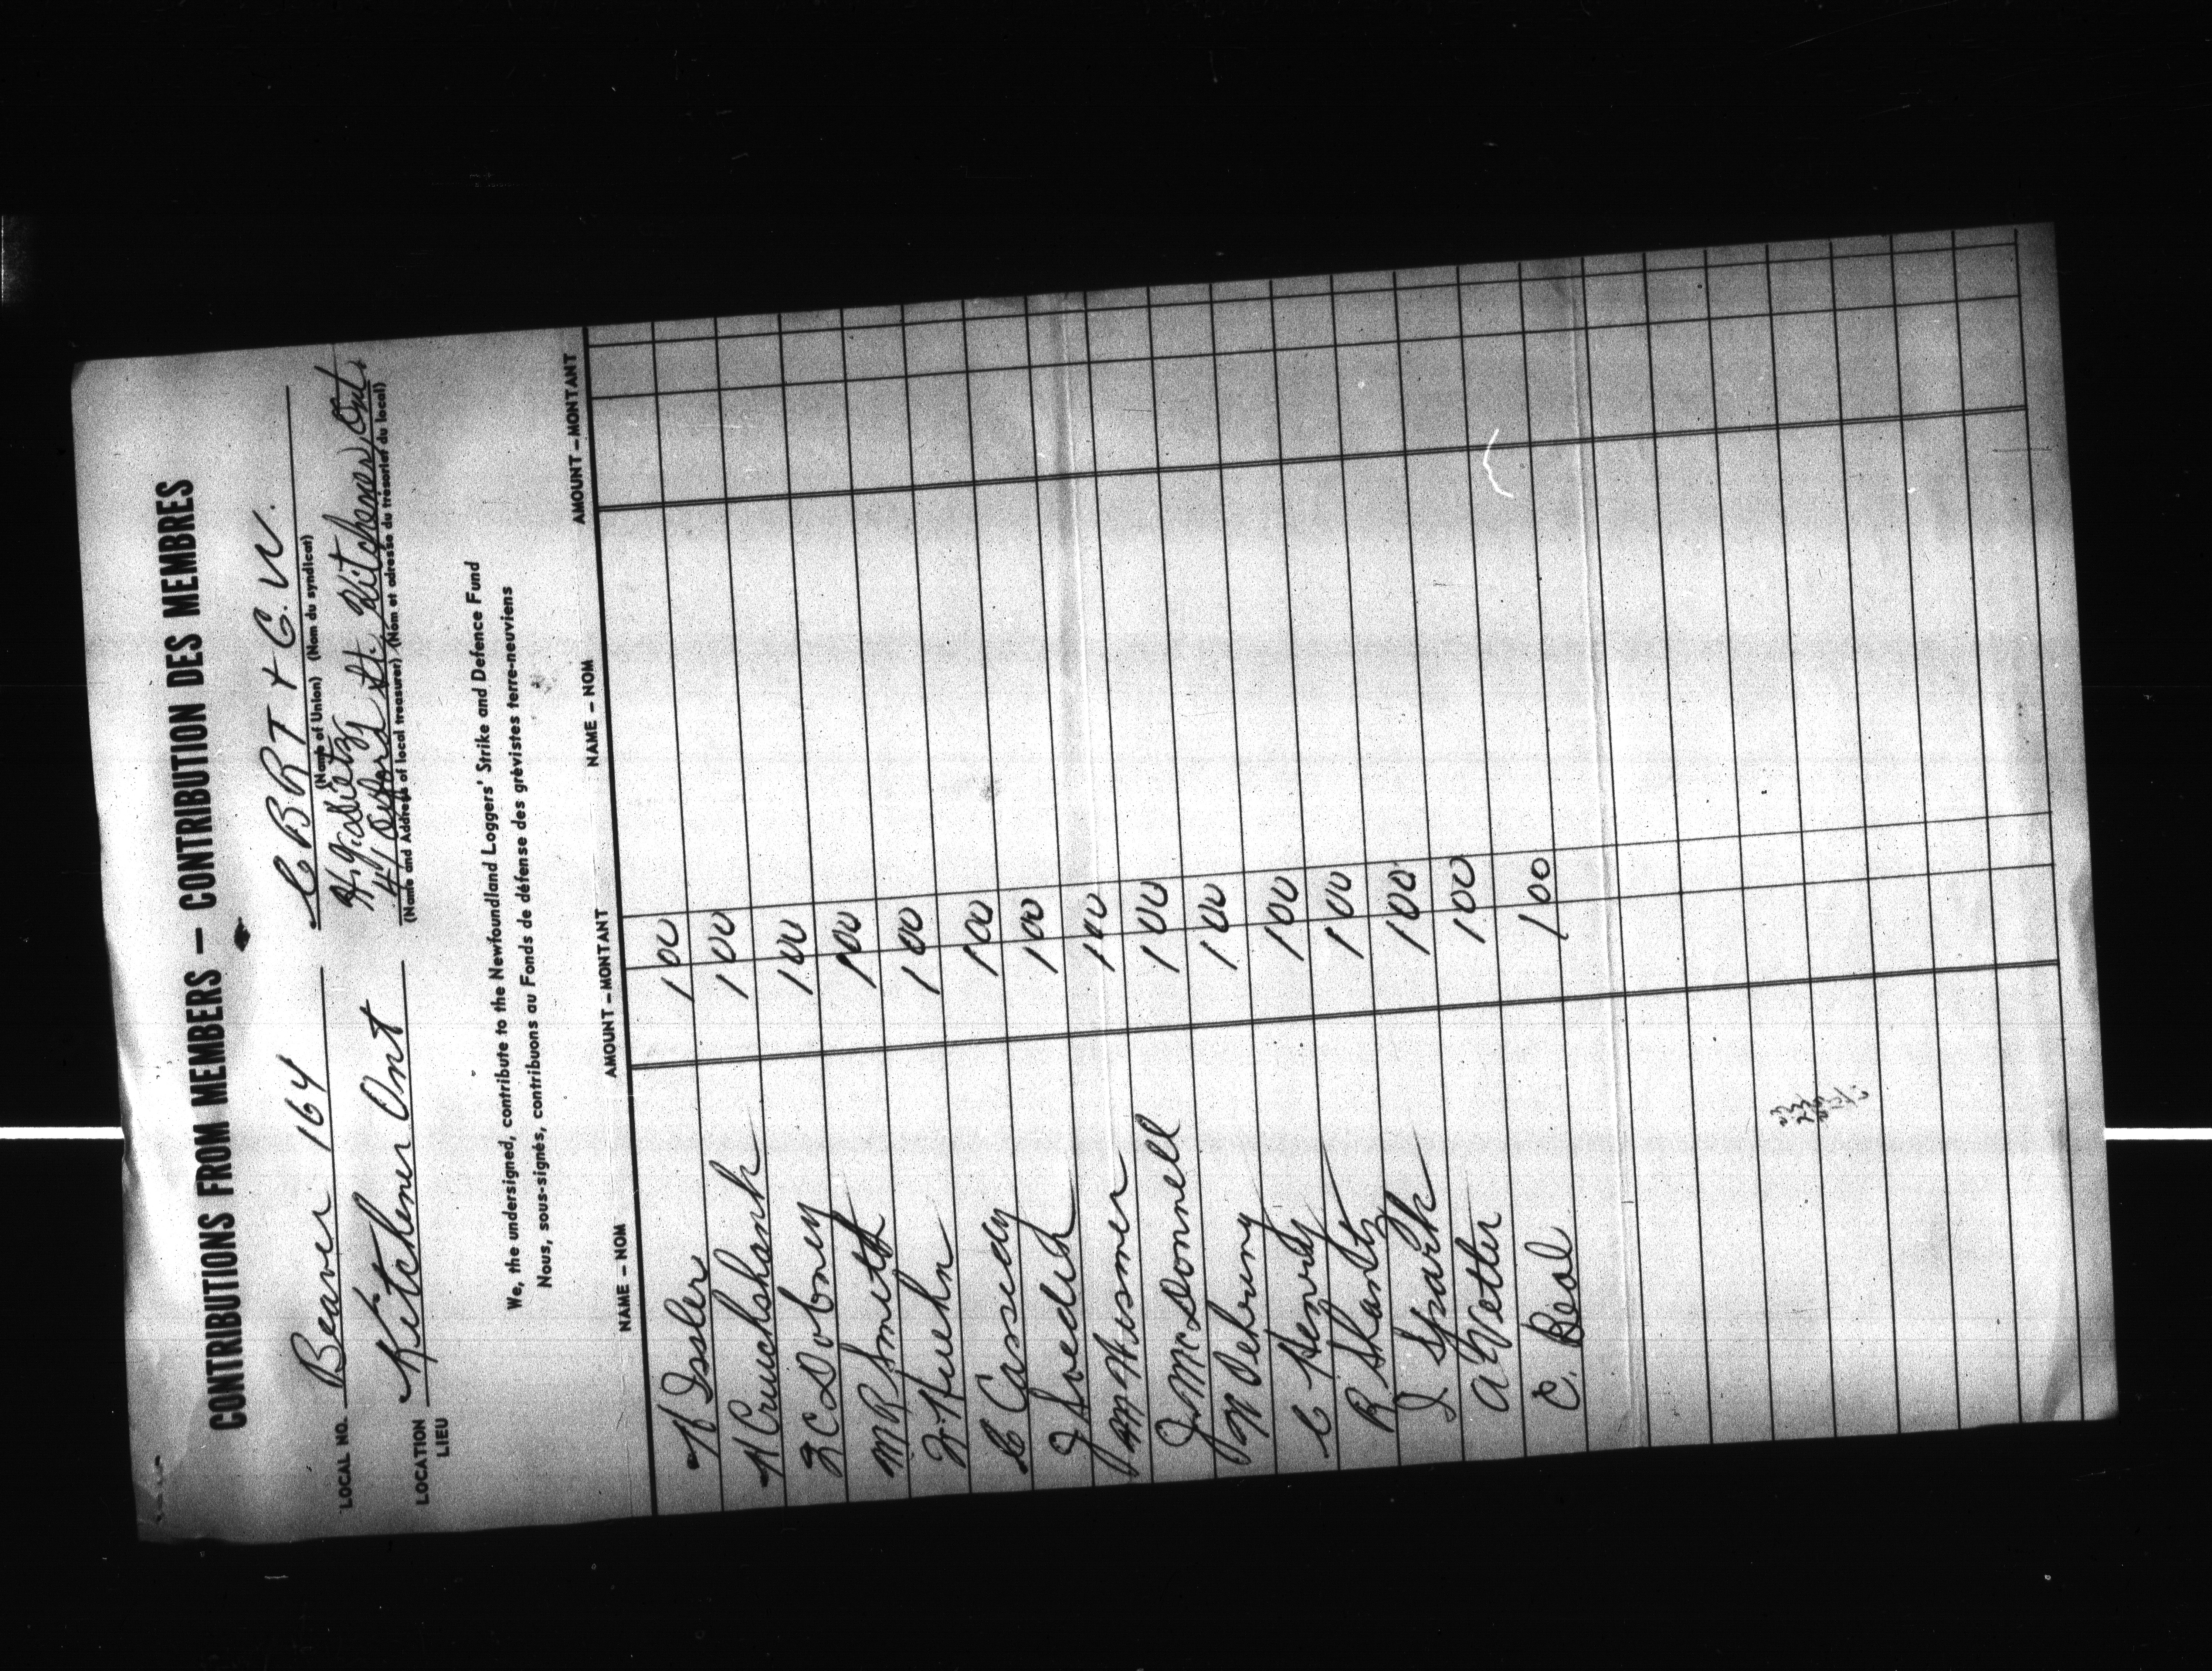 CONTRIBUTIONS FROM MEMBERS – CONTRIBUTION DES MEMBRES
LOCAL NO. Beaver 164 C B R T + G. W.
(Name of Union) (Nom du syndicat)
LOCATION Kitchener Ont
LIEU
47 Oxford St. Kitchener Ont.
(Name and Address of local treasurer) (Nom et adresse du trésorier du local)
We, the undersigned, contribute to the Newfoundland Loggers' Strike and Defence Fund
Nous, sous-signés, contribuons au Fonds de défense des grévistes terre-neuviens
NAME – NOM AMOUNT – MONTANT NAME – NOM AMOUNT – MONTANT
H Issler 1 00
H Cruickshank 1 00
C Dobney 1 00
M R Smith 1 00
Kuehn 1 00
C Cassedy 1 00
J 1 00
M Hesmer 1 00
J. McDonnell 1 00
1 00
C Henry 1 00
R Shantz 1 00
J Spark 1 00
A Vetter 1 00
C. Beal 1 00